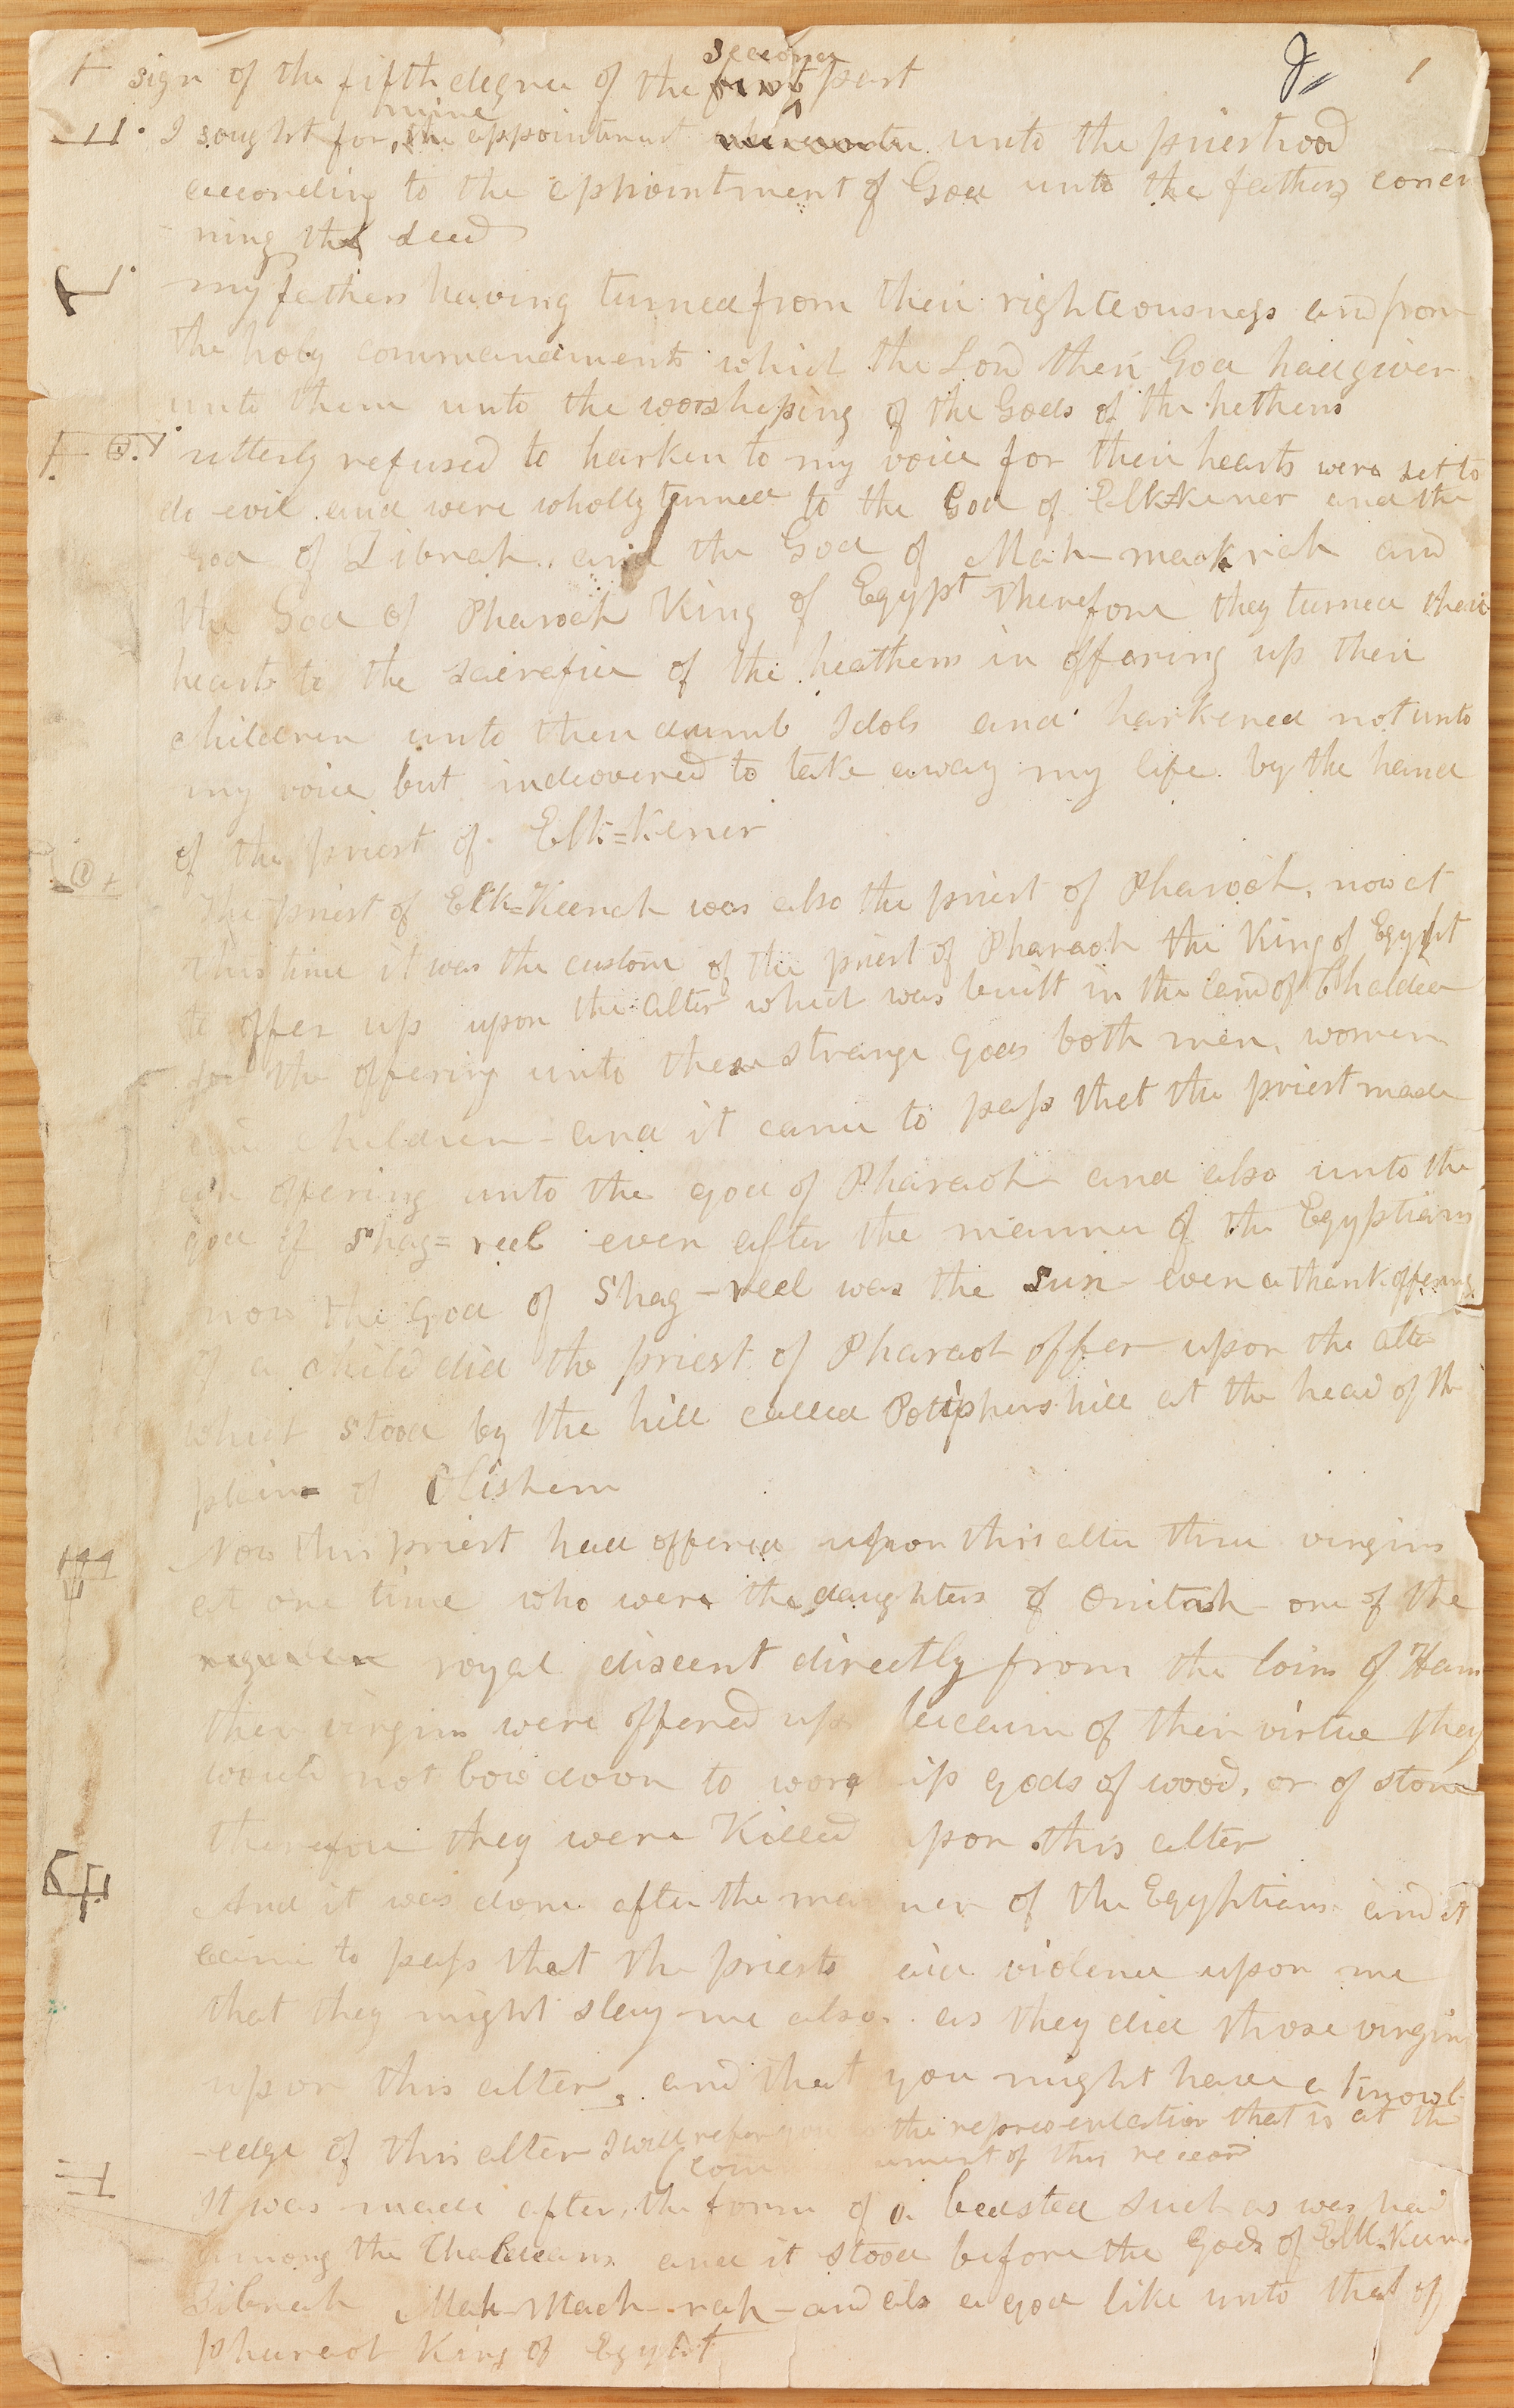 sign of the fifth degree of the first second part
I sought for mine the appointment unto the priesthood
according to the appointment of God unto the fathers concer
ning the seed
my fathers having turned from their righteousness and from
the holy commandments which the Lord their God had given
unto them unto the worshiping of the Gods of the hethens
utterly refused to harken to my voice for their hearts were set to
do evil and were wholly turned to the God of Elk=kener and the
God of Zibnah and the God of Mah-mackrah and
the God of Pharoah King of Egypt Therefore they turned their
hearts to the sacrefice of the heathens in offering up their
children unto their dumb Idols and harkened not unto
my voice but indeovered to take away my life by the hand
of the priest of Elk=Kener
The priest of Elk=Keenah was also the priest of Pharoah, now at
this time it was the custom of the priest of Pharaoh the King of Egypt
to offer up upon the alter which was built in the land of Chaldea
for the offering unto these strange gods both men, women
and children - and it came to pass that the priest made
an offering unto the god of Pharaoh and also unto the
god of Shag=reel even after the manner of the Egyptians
now the god of Shag-reel was the Sun - even a thank offering
of a child did the priest of Pharaoh offer upon the alter
which stood by the hill called Potiphers hill at the head of the
plain of Olishem
Now this priest had offered upon this alter three virgins
at one time who were the daughters of Onitah - one of the
royal discent directly from the loins of Ham
these virgins were offered up because of their virtue they
would not bow down to worship gods of wood, or of stone
therefore they were Killed upon this alter
And it was done after the manner of the Egyptians and it
came to pass that the priests did violence upon me
that they might slay me also. as they did those virgins
upon this alter, and that you might have a knowl
-edge of this alter I will refer you to the representation that is at the
(com ement of this record
It was made after the form of a beasted such as was had
among the Chaldeans and it stood before the Gods of Elk-Keen
Zibnah Mah-Mach-rah - and also a god like unto that of
Pharaoh King of Egypt